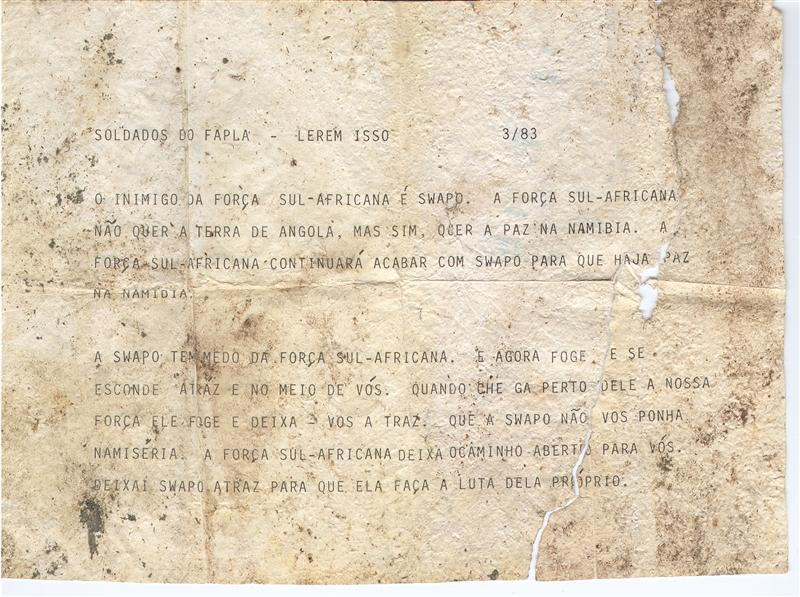 SOLDADOS DO FAPLA - LEREM ISSO 3/83
O INIMIGO DA FORÇA SUL-AFRICANA É SWAPO. A FORÇA SUL-AFRICANA
NÃO QUER A TERRA DE ANGOLA, MAS SIM, QUER A PAZ NA NAMIBIA. A
FORÇA-SUL-AFRICANA CONTINUARÁ ACABAR COM SWAPO PARA QUE HAJA PAZ
NA NAMIDIA.
A SWAPO TEM MEDO DA FORÇA SUL-AFRICANA. E AGORA FOGE E SE
ESCONDE ATRAZ E NO MEIO DE VÓS. QUANDO CHE GA PERTO DELE A NOSSA
FORÇA ELE FOGE E DEIXA - VOS A TRAZ. QUE A SWAPO NÃO VOS PONHA
NAMISÉRIA. A FORÇA SUL-AFRICANA DEIXA OCAMINHO ABERTO PARA VÓS.
DEIXAI SWAPO ATRAZ PARA QUE ELA FAÇA A LUTA DELA PRÓPRIO.